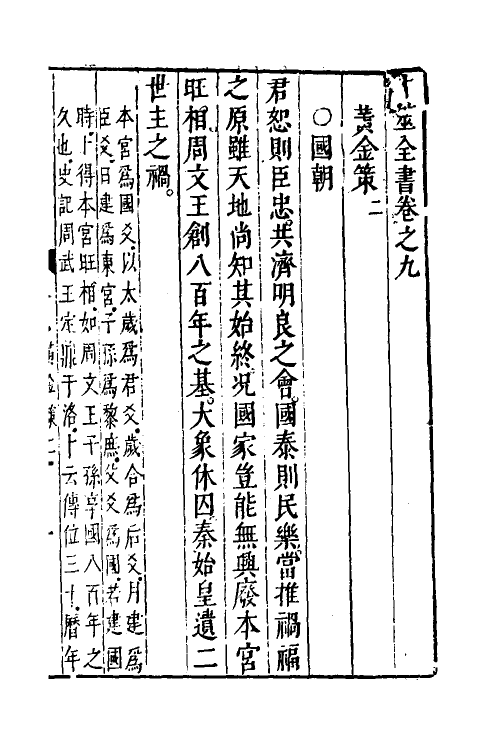 卜筮全書卷之九
黃金策二
○國朝
君恕則臣忠。共濟明良之會。國泰則民樂。當推禍福
之原雖天地尚知其始終况國家豈能無興廢本宮
旺相周文王創八百年之基。大象休囚秦始皇遺二
世主之禍。
本宮爲國爻。以太歲爲君爻。歲合爲后爻。月建爲
臣爻。日建爲東宮。子孫爲黎庶。父爻爲國。若建國
時。卜得本宮旺相。如周文王子孫享國八百年之
久也。史記周武王定鼎于洛。卜云傳位三十。曆年
黃金策二 一